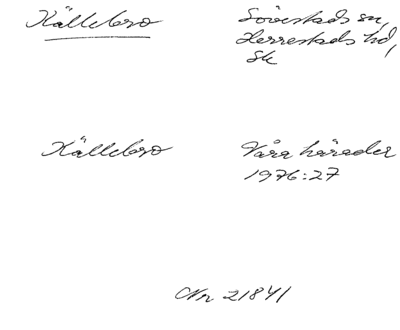 Källebro
Sövestads sn,
Herrestads hd,
Sk
Källebro
Våra härader
1976:27
Nr 21841